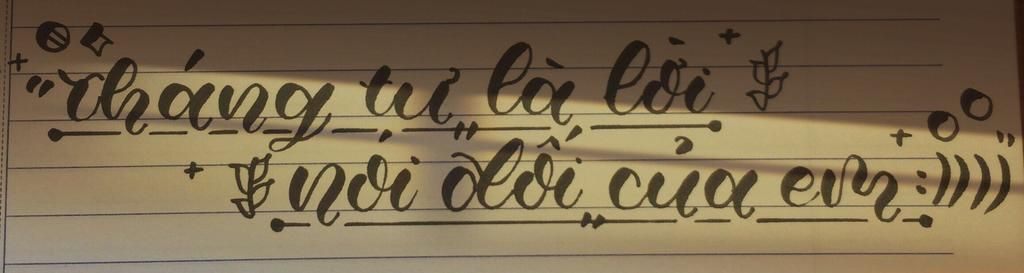 "Tháng tư là lời
nói dối của em :))))"